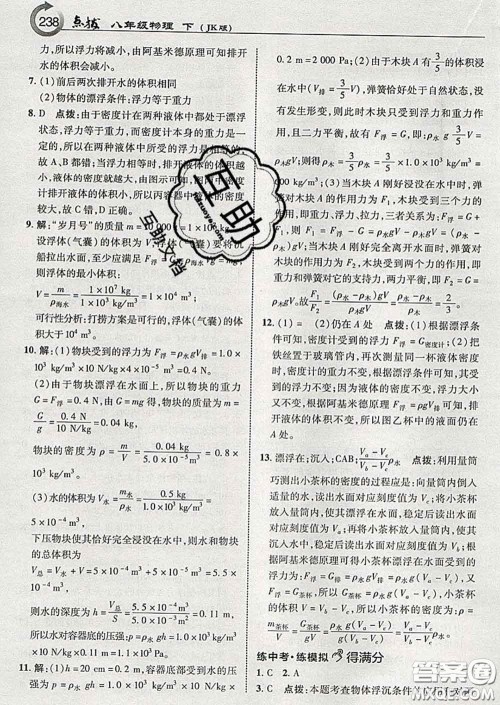 238 点拨 八年级物理 下 (JK版)
力,所以浮力将减小,由阿基米德原理可知排开水
的体积会减小。
7. (1)前后两次排开水的体积相同
(2)物体的漂浮条件:浮力等于重力
8. D 点拨:由于密度计在两种液体中都处于漂浮
状态,浮力等于重力,而密度计本身的重力是一定
的,所以在两种液体中所受的浮力是相等的,故
故A、B都错。当浮力相等时,排开液体的体积越
小,液体的密度就越大,由图示可知,
计排开液体的体积小,所以乙中液体密度
大,故C错,D正确。
9. 解:“岁月号”的质量 m=10 000 t=1×10⁷ kg,
设浮体(气囊)的体积为V,浮体(气囊)要将沉
船拉出水面,至少应满足
则浮体的最小体积:
V=m/ρ海水=1×10⁷ kg/1×10³ kg/m³=1×10⁴ m³;
可行性分析:打捞方案是可行的,浮体(气囊)的体
积大于10⁴ m³。
10. 解:(1)物块受到的浮力为F浮=ρ水gV排=1.0×
10³ kg/m³×10 N/kg×4×10⁻⁵ m³=0.4 N。
(2)由于物块漂浮在水面上,所以物块的重力
G=F浮=0.4 N,由G=mg得,物块的质量为m=
G/g=0.4 N/10 N/kg=0.04 kg,
物块的密度为ρ=m/V=0.04 kg/5.0×10⁻⁵ m³=0.8×
10³ kg/m³。
(3)水的体积为V水=m水/ρ水=0.5 kg/1.0×10³ kg/m³=
5×10⁻⁴ m³,
下压物块使其恰好完全浸没在水中,水和物块
的总体积为
V总=V水+V=5×10⁻⁴ m³+5.0×10⁻⁵ m³=
5.5×10⁻⁴ m³,
则水的深度为h=V总/S=5.5×10⁻⁴ m³/5.0×10⁻³ m²=0.11 m,
所以水对容器底部的压强:p=ρ水gh=1.0×10³ kg/m³
×10 N/kg×0.11 m=1.1×10³ Pa。
11. 解:(1)h=20 cm=0.2 m,容器底部受到水的压
强p=ρ水gh=1.0×10³ kg/m³×10 N/kg×
在水中,V排=V−2/5V=3/5V,由于木块A有3/5
的体积浸在水中时,弹簧恰好处于自然状态,没
有发生形变,所以此时木块只受到浮力和重力作
用,且二力平衡,故有F浮=G,即:ρ水g 3/5V=
ρ木gV;可得:ρ木=3/5ρ水=3/5×1.0×10³ kg/m³=
0.6×10³ kg/m³。(3)当木块A刚好浸没在水中时,弹
簧对木块A的作用力为F₁,木块受到三个力的作
用,即浮力、重力、拉力,三者关系为:F浮=G+
F₁,
当木块A刚好完全离开水面时,弹簧对
木块A的作用力为F₂,木块受到两个力的作用,即
重力和弹簧对它的支持力,两力平衡,F₂=G=
ρ木gV。故F₁/F₂=(ρ水−ρ木)gV/ρ木gV=(ρ水−ρ木)/ρ木=2/3。
12. (1)= (2)仍在A处 点拨:(1)根据漂浮条
件可知,密度计受到的浮力F浮=G密度计;(2)把
铁丝置于玻璃管内,再次测量同一杯液体密度
时,密度计的重力不变,根据漂浮条件可知,浮力
大小不变,因为液体的密度不变,浮力大小不变,
根据阿基米德原理F浮=ρgV排可知,
排开液体的体积不变,所以图乙杯中的液面仍在
A处。
13. 漂浮在;沉入;CAB;(Va−Vc)/(Vb−Vc)ρ水 点拨:利用量筒
巧测出小茶杯的密度的实验步骤是:向量筒内倒入
适量的水,读出水面对应刻度值为Vc;将小茶杯
放入量筒内,使其漂浮在水面上,稳定后读出水
面对应刻度值为Va;将小茶杯浸入量筒内,使
其沉入水中,稳定后读出水面对应刻度值为Vb;
根据阿基米德原理和小茶杯漂浮在水面受力的
特点可得,小茶杯的质量m茶杯=ρ水(Va−Vc),小茶
杯的体积V=Vb−Vc,则小茶杯的密度为ρ茶杯=
m茶杯/V=(Va−Vc)/(Vb−Vc)ρ水。
练中考·练模拟 得满分
1. C 2. A
3. C 点拨:本题考查物体浮沉条件
百助
作业帮